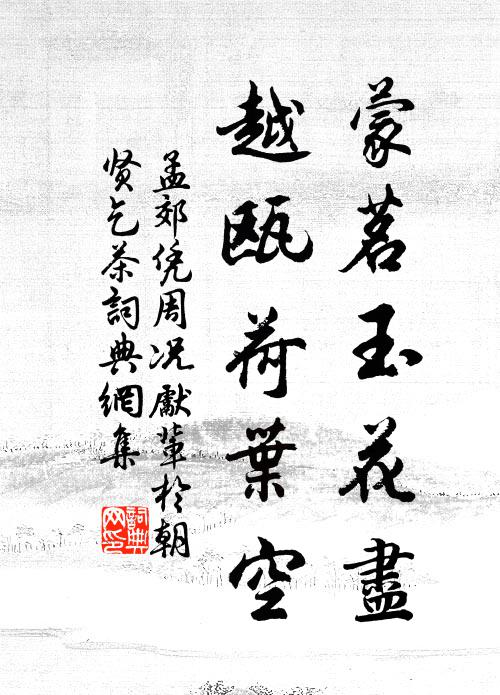 蒙茗玉花盡
越甌荷葉空
孟郊凭周况獻輩於朝
贤乞茶詞典網集
詞典网印